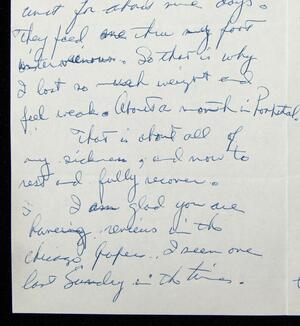 for about nine days.
They feed one thru my foot
intervenous. So that is why
I lost so much weight and
feel weak. About a month in Hospital.
That is about all of
my sickness, and now to
rest and fully recover.
I am glad you are
haveing reviews in the
chicago paper. I seen one
last Sunday in the times.